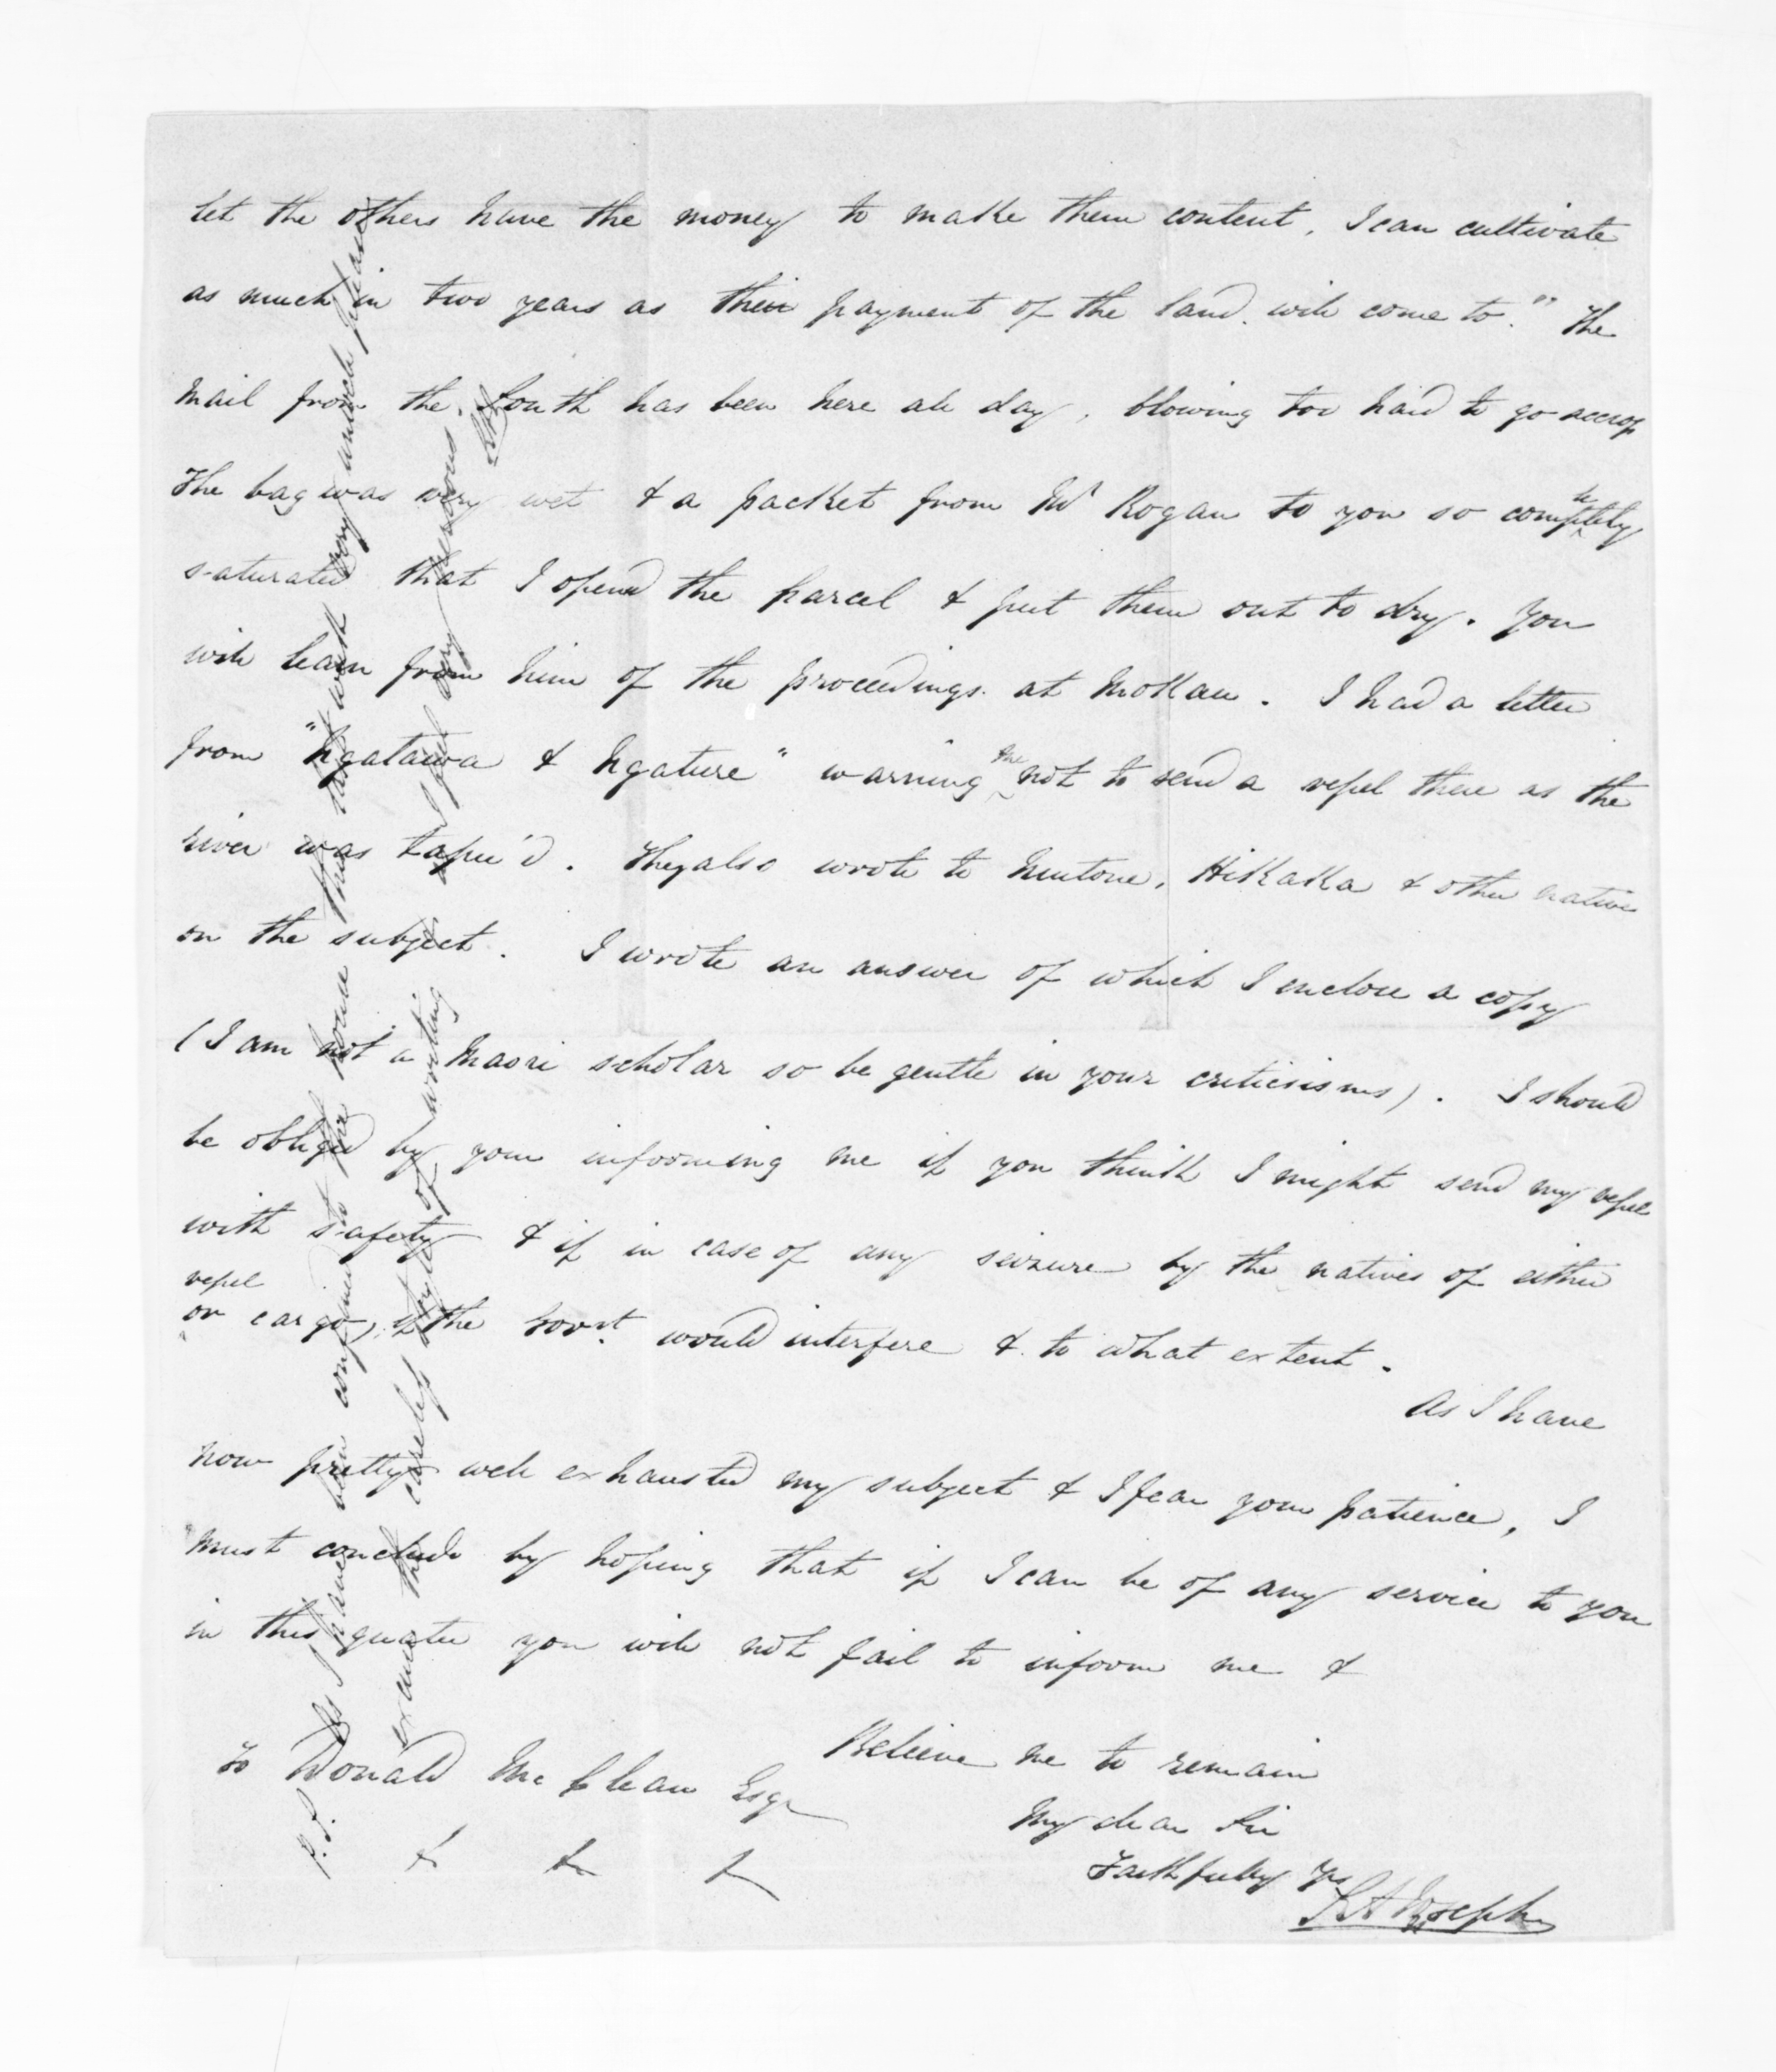 let the others have the money to make them content, I can cultivate
as much in two years as their payment of the land will come to." The
Mail from the South has been here all day, blowing too hard to go across
The bag was very wet & a packet from Mr Rogan to you so completely
saturated that I opend the parcel & put them out to dry. You
will learn from him of the proceedings at Mokau. I had a letter
from "Ngatawa & Ngature" warning me not to send a vessel there as the
river was tapu'd. They also wrote to Hikaka & other natives
on the subject. I wrote an answer of which I enclose a copy
(I am not a Maori scholar so be gentle in your criticisms). I should
be obliged by your informing me if you think I might send my vessel
with safety & if in case of any seizure by the natives of either
vessel
or cargo, if the Govt. would interfere & to what extent.
As I have
now pretty well exhausted my subject & I fear your patience, I
must conclude by hoping that if I can be of any service to you
in this quater you will not fail to inform me &
Believe me to remain
My dear Sir
Faithfully Yrs
S A Joseph
To Donald McClean Esqr
& & &
P.S. As I have been confined to the house this last week very much pleased
excuse this careless style of writing & I feel very nervous